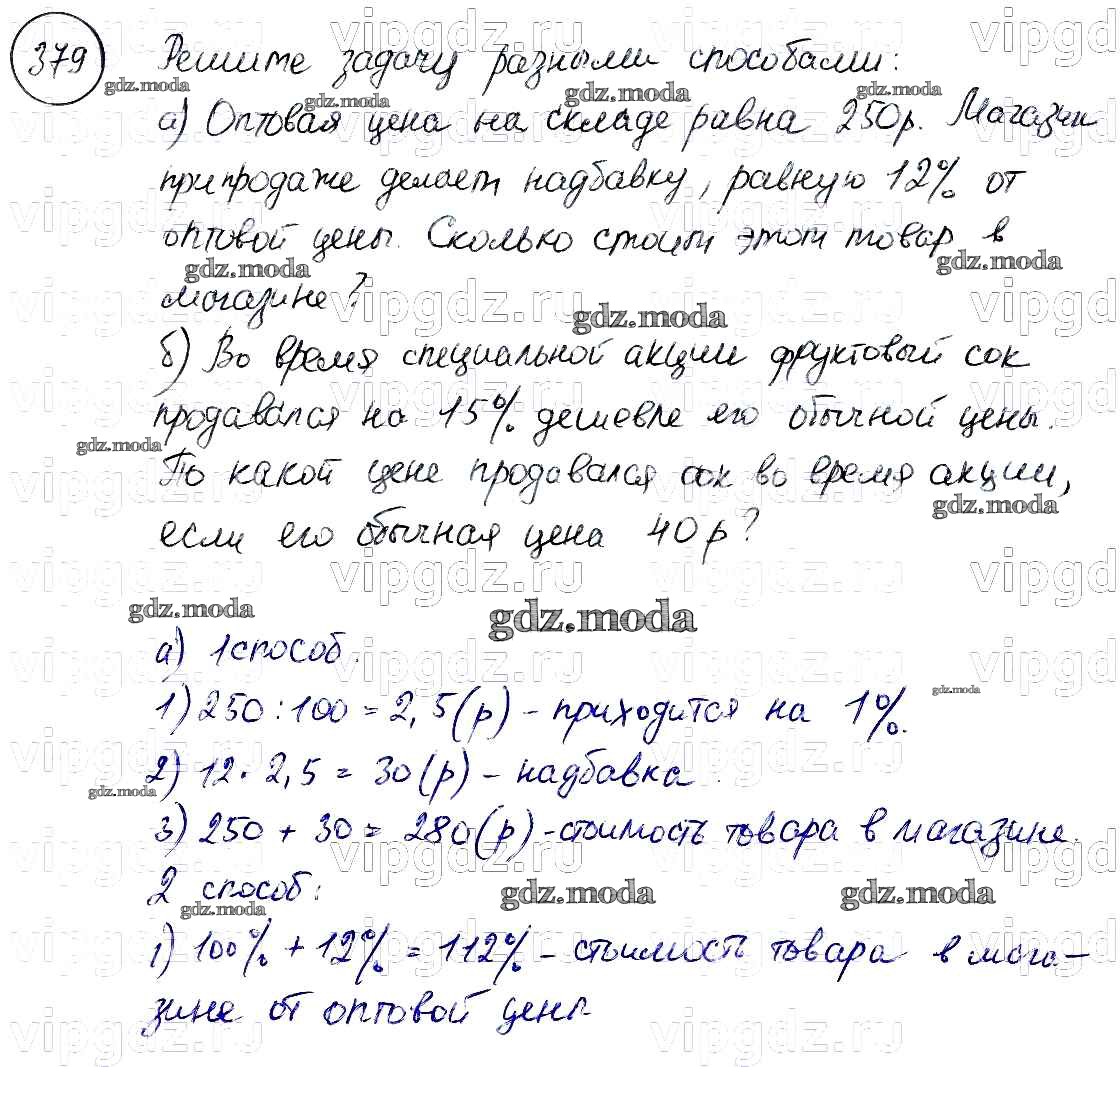 379 Решите задачу разными способами:
а) Оптовая цена на складе равна 250р. Магазин
при продаже делает надбавку, равную 12% от
оптовой цены. Сколько стоит этот товар в
магазине?
б) Во время специальной акции фруктовый сок
продавался на 15% дешевле его обычной цены.
По какой цене продавался сок во время акции,
если его обычная цена 40 р?
а) 1 способ.
1) 250 : 100 = 2,5 (р) - приходится на 1%.
2) 12 · 2,5 = 30 (р) - надбавка.
3) 250 + 30 = 280 (р) - стоимость товара в магазине.
2 способ:
1) 100% + 12% = 112% - стоимость товара в мага-
зине от оптовой цены
vipgdz.ru
gdz.moda